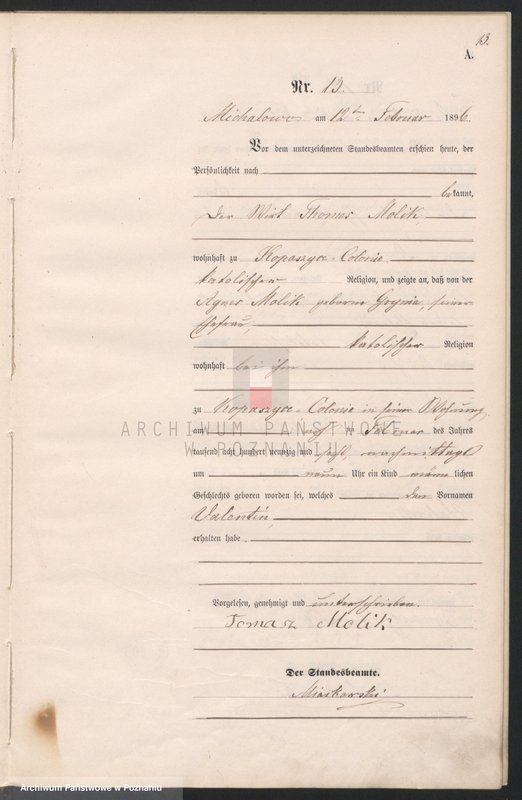 13.
A.
Nr. 13.
Michalowo am 12ten Februar 1896.
Vor dem unterzeichneten Standesbeamten erschien heute, der
Persönlichkeit nach
bekannt,
Der Wirt Thomas Molik
wohnhaft zu Kopaszyce-Colonie
katolischer Religion, und zeigte an, daß von der
Agnes Molik geborne Grynia, seiner
Ehefrau,
katolischer Religion
wohnhaft bei ihm
zu Kopaszyce-Colonie in seiner Wohnung
am Februar des Jahres
tausend acht hundert neunzig und sechs, nachmittags
um neun Uhr ein Kind männlichen
Geschlechts geboren worden sei, welches den Vornamen
Valentin,
erhalten habe.
Vorgelesen, genehmigt und unterschrieben.
Tomasz Molik
Der Standesbeamte.
Miaskowski
ARCHIWUM PAŃSTWOWE
W POZNANIU
Archiwum Państwowe w Poznaniu